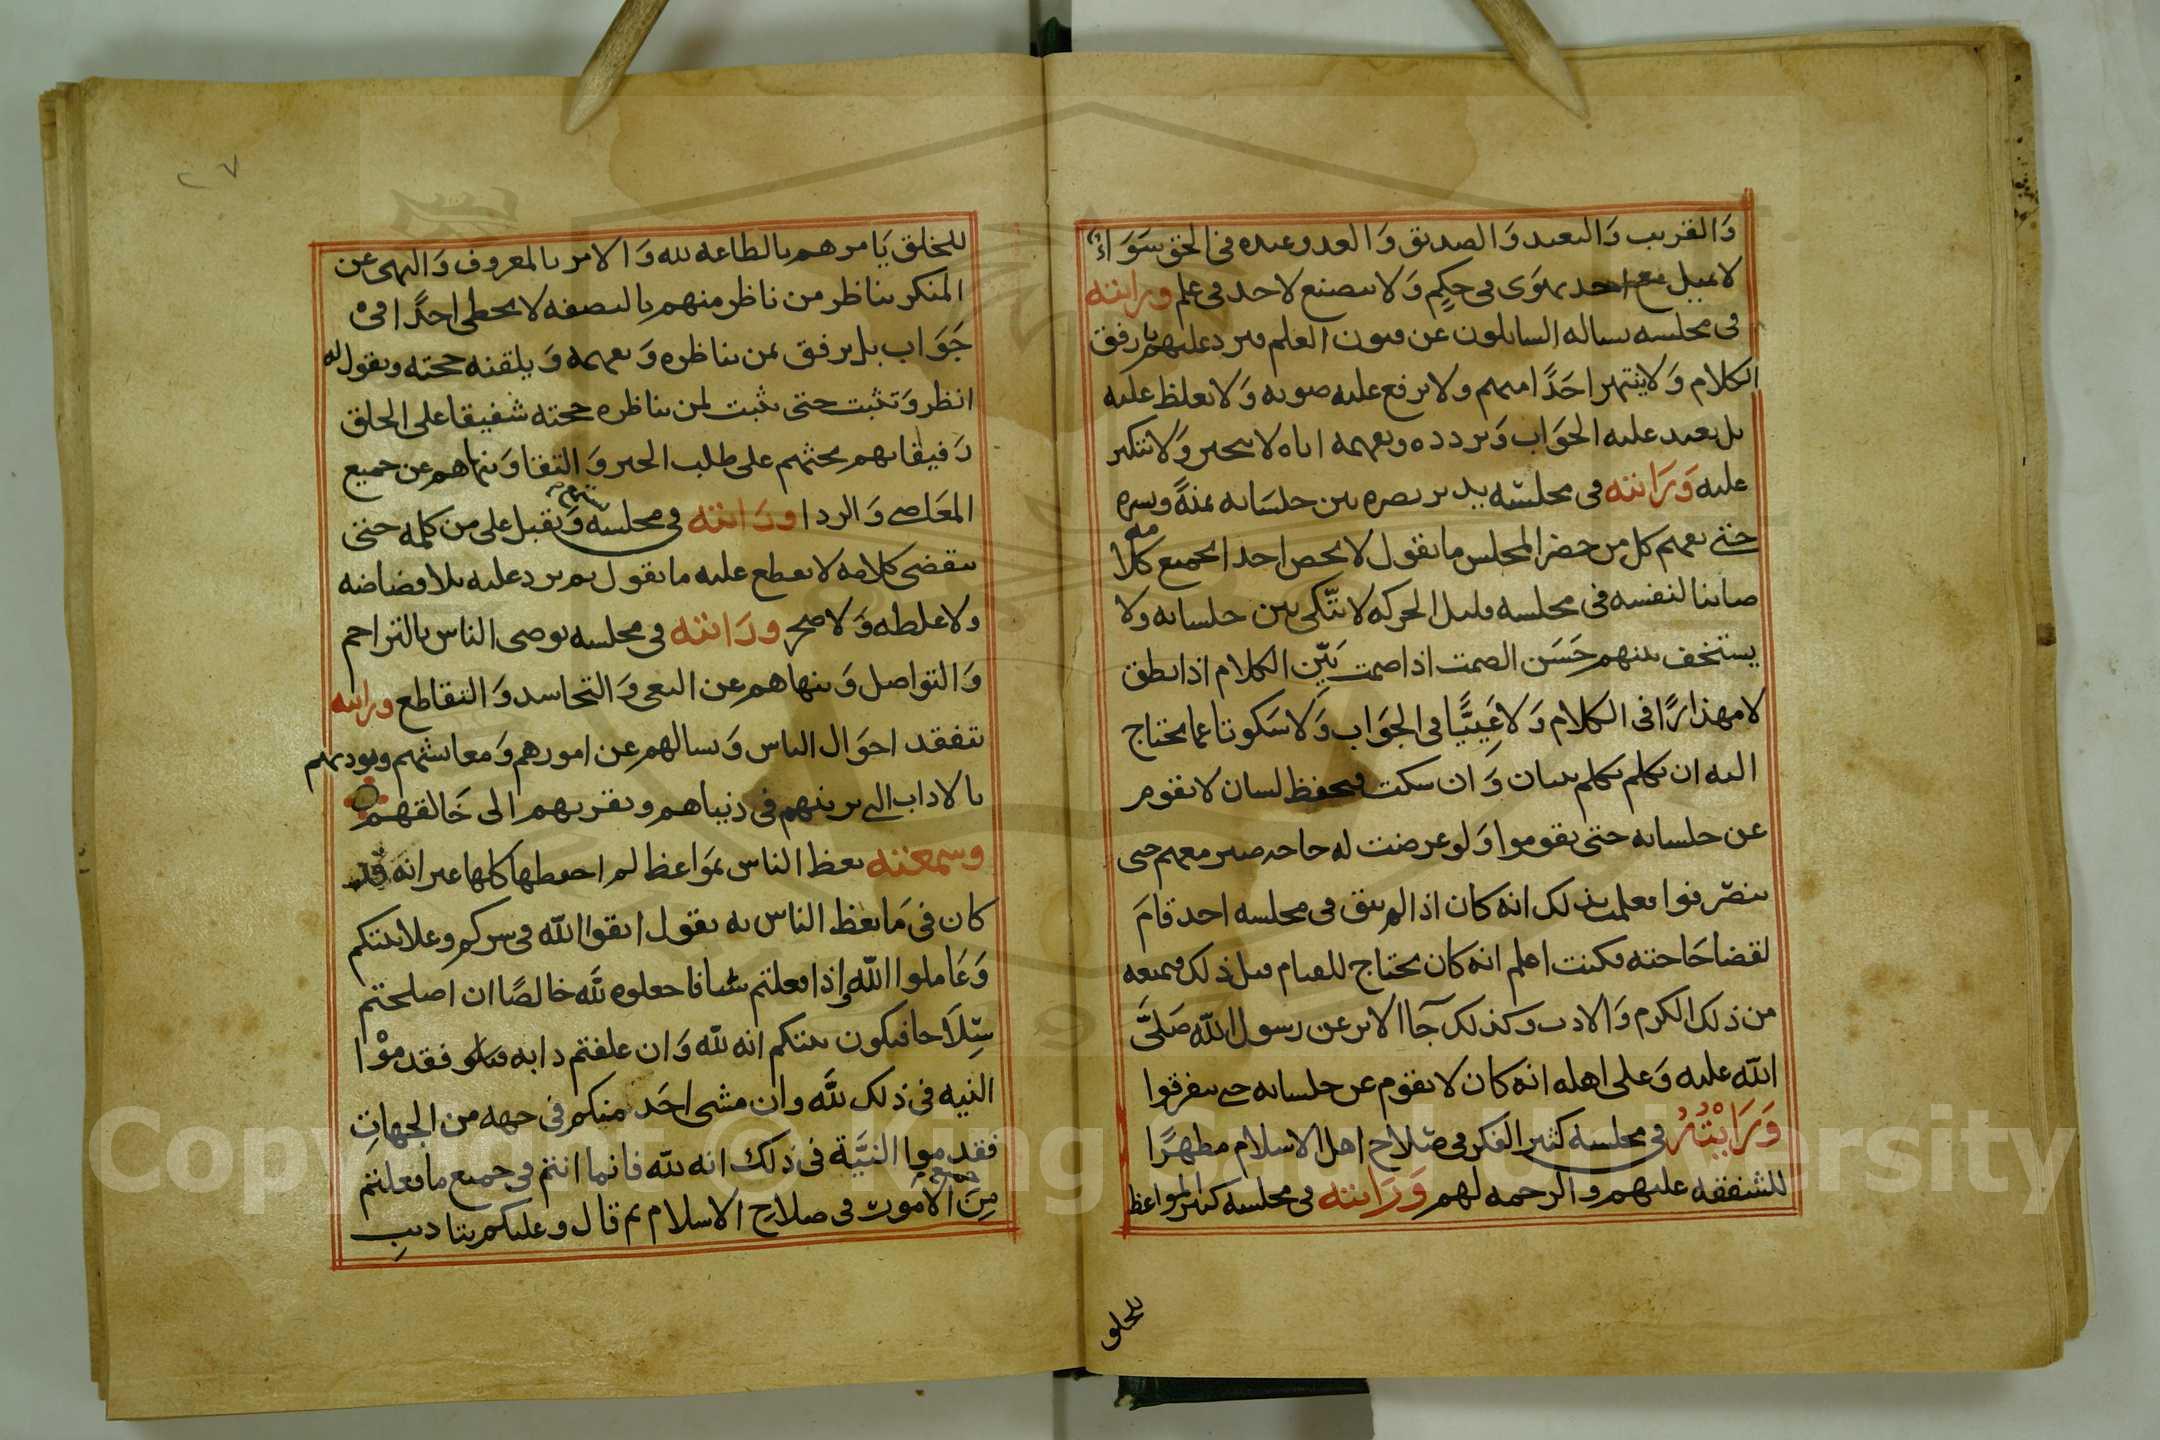 والقريب والبعيد والصديق والعدو عنده في الحق سواء
لا يميل مع احد بهوى في حكم ولا يتصنع لاحد في علم ورايته
في مجلسه يساله السايلون عن فنون العلم فيرد عليهم بارفق
الكلام ولا ينتهر احدًا منهم ولا يرفع عليه صوته ولا يغلظ عليه
بل يعيد عليه الجواب ويردده ويفهمه اياه لا يتجبر ولا يتكبر
عليه ورايته في مجلسه يدير بصره بين جلسايه يمنة ويسره
حتى يفهم كل من حضر المجلس ما يقول لا يخص احدا بجميع كلامه
صاينا لنفسه في مجلسه قليل الحركه لا يتّكي بين جلسايه ولا
يستخف بينهم حَسَن الصمت اذا صمت بيّن الكلام اذا نطق
لا مهذارًا في الكلام ولا عَيِيًّا في الجواب ولا سكوتا عما يحتاج
اليه ان تكلم تكلم ببيان وان سكت فبحفظ لسان لا يقوم
عن جلسايه حتى يقوموا ولو عرضت له حاجه صبر معهم حتى
ينصرفوا فعلمت بذلك انه كان اذا لم يبق في مجلسه احد قام
لقضا حاجته فكنت اعلم انه كان يحتاج للقيام قبل ذلك فيمنعه
من ذلك الكرم والادب وكذلك جآ الاثر عن رسول الله صَلىَّ
الله عليه وعلى اهله انه كان لا يقوم عن جلسايه حتى يتفرقوا
ورايْتُهُ في مجلسه كثير الفكر في صلاح اهل الاسلام مظهرًا
للشفقه عليهم والرحمه لهم ورايته في مجلسه كثير المواعظ
للخلق
للخلق يامرهم بالطاعه لله والامر بالمعروف والنهى عن
المنكر يناظر من ناظر منهم بالنصفه لا يخطي احدًا في
جواب بل يرفق بمن يناظره ويفهمه ويلقنه حجته ويقول له
انظر وتثبت حتى يثبت لمن يناظره حجته شفيقا على الخلق
رفيقا بهم يحثهم على طلب الخير والتقا وينهاهم عن جميع
المعاصي والردا ورايته في مجلسه يستمع ويقبل على من كلمه حتى
ينقضى كلامه لا يقطع عليه ما يقول ثم يرد عليه بلا فضاضه
ولا غلظه ولا ضجر ورايته في مجلسه يوصى الناس بالتراحم
والتواصل وينهاهم عن البغى والتحاسد والتقاطع ورايته
يتفقد احوال الناس ويسالهم عن امورهم ومعايشهم ويودبهم
بالاداب التي يزينهم في دنياهم ويقربهم الى خالقهم
وسمعته يعظ الناس بمواعظ لم احفظها كلها غير انه قد
كان في ما يعظ الناس به يقول اتقوا الله في سركم وعلانيتكم
وعاملوا الله واذا فعلتم شيا فاجعلوه لله خالصًا ان اصلحتم
سِلَاحا فيكون نيتكم انه لله وان علفتم دابه فقدموْا
النيه في ذلك لله وان مشى احَد منكم في جهه من الجهاتِ
فقدموا النيَّة في ذلك انه لله فانما انتم في جميع ما فعلتم
مِنَ جميع الامور في صلاح الاسلام ثم قال وعليكم بتاديبِ
٢٧
Copyright © King Saud University